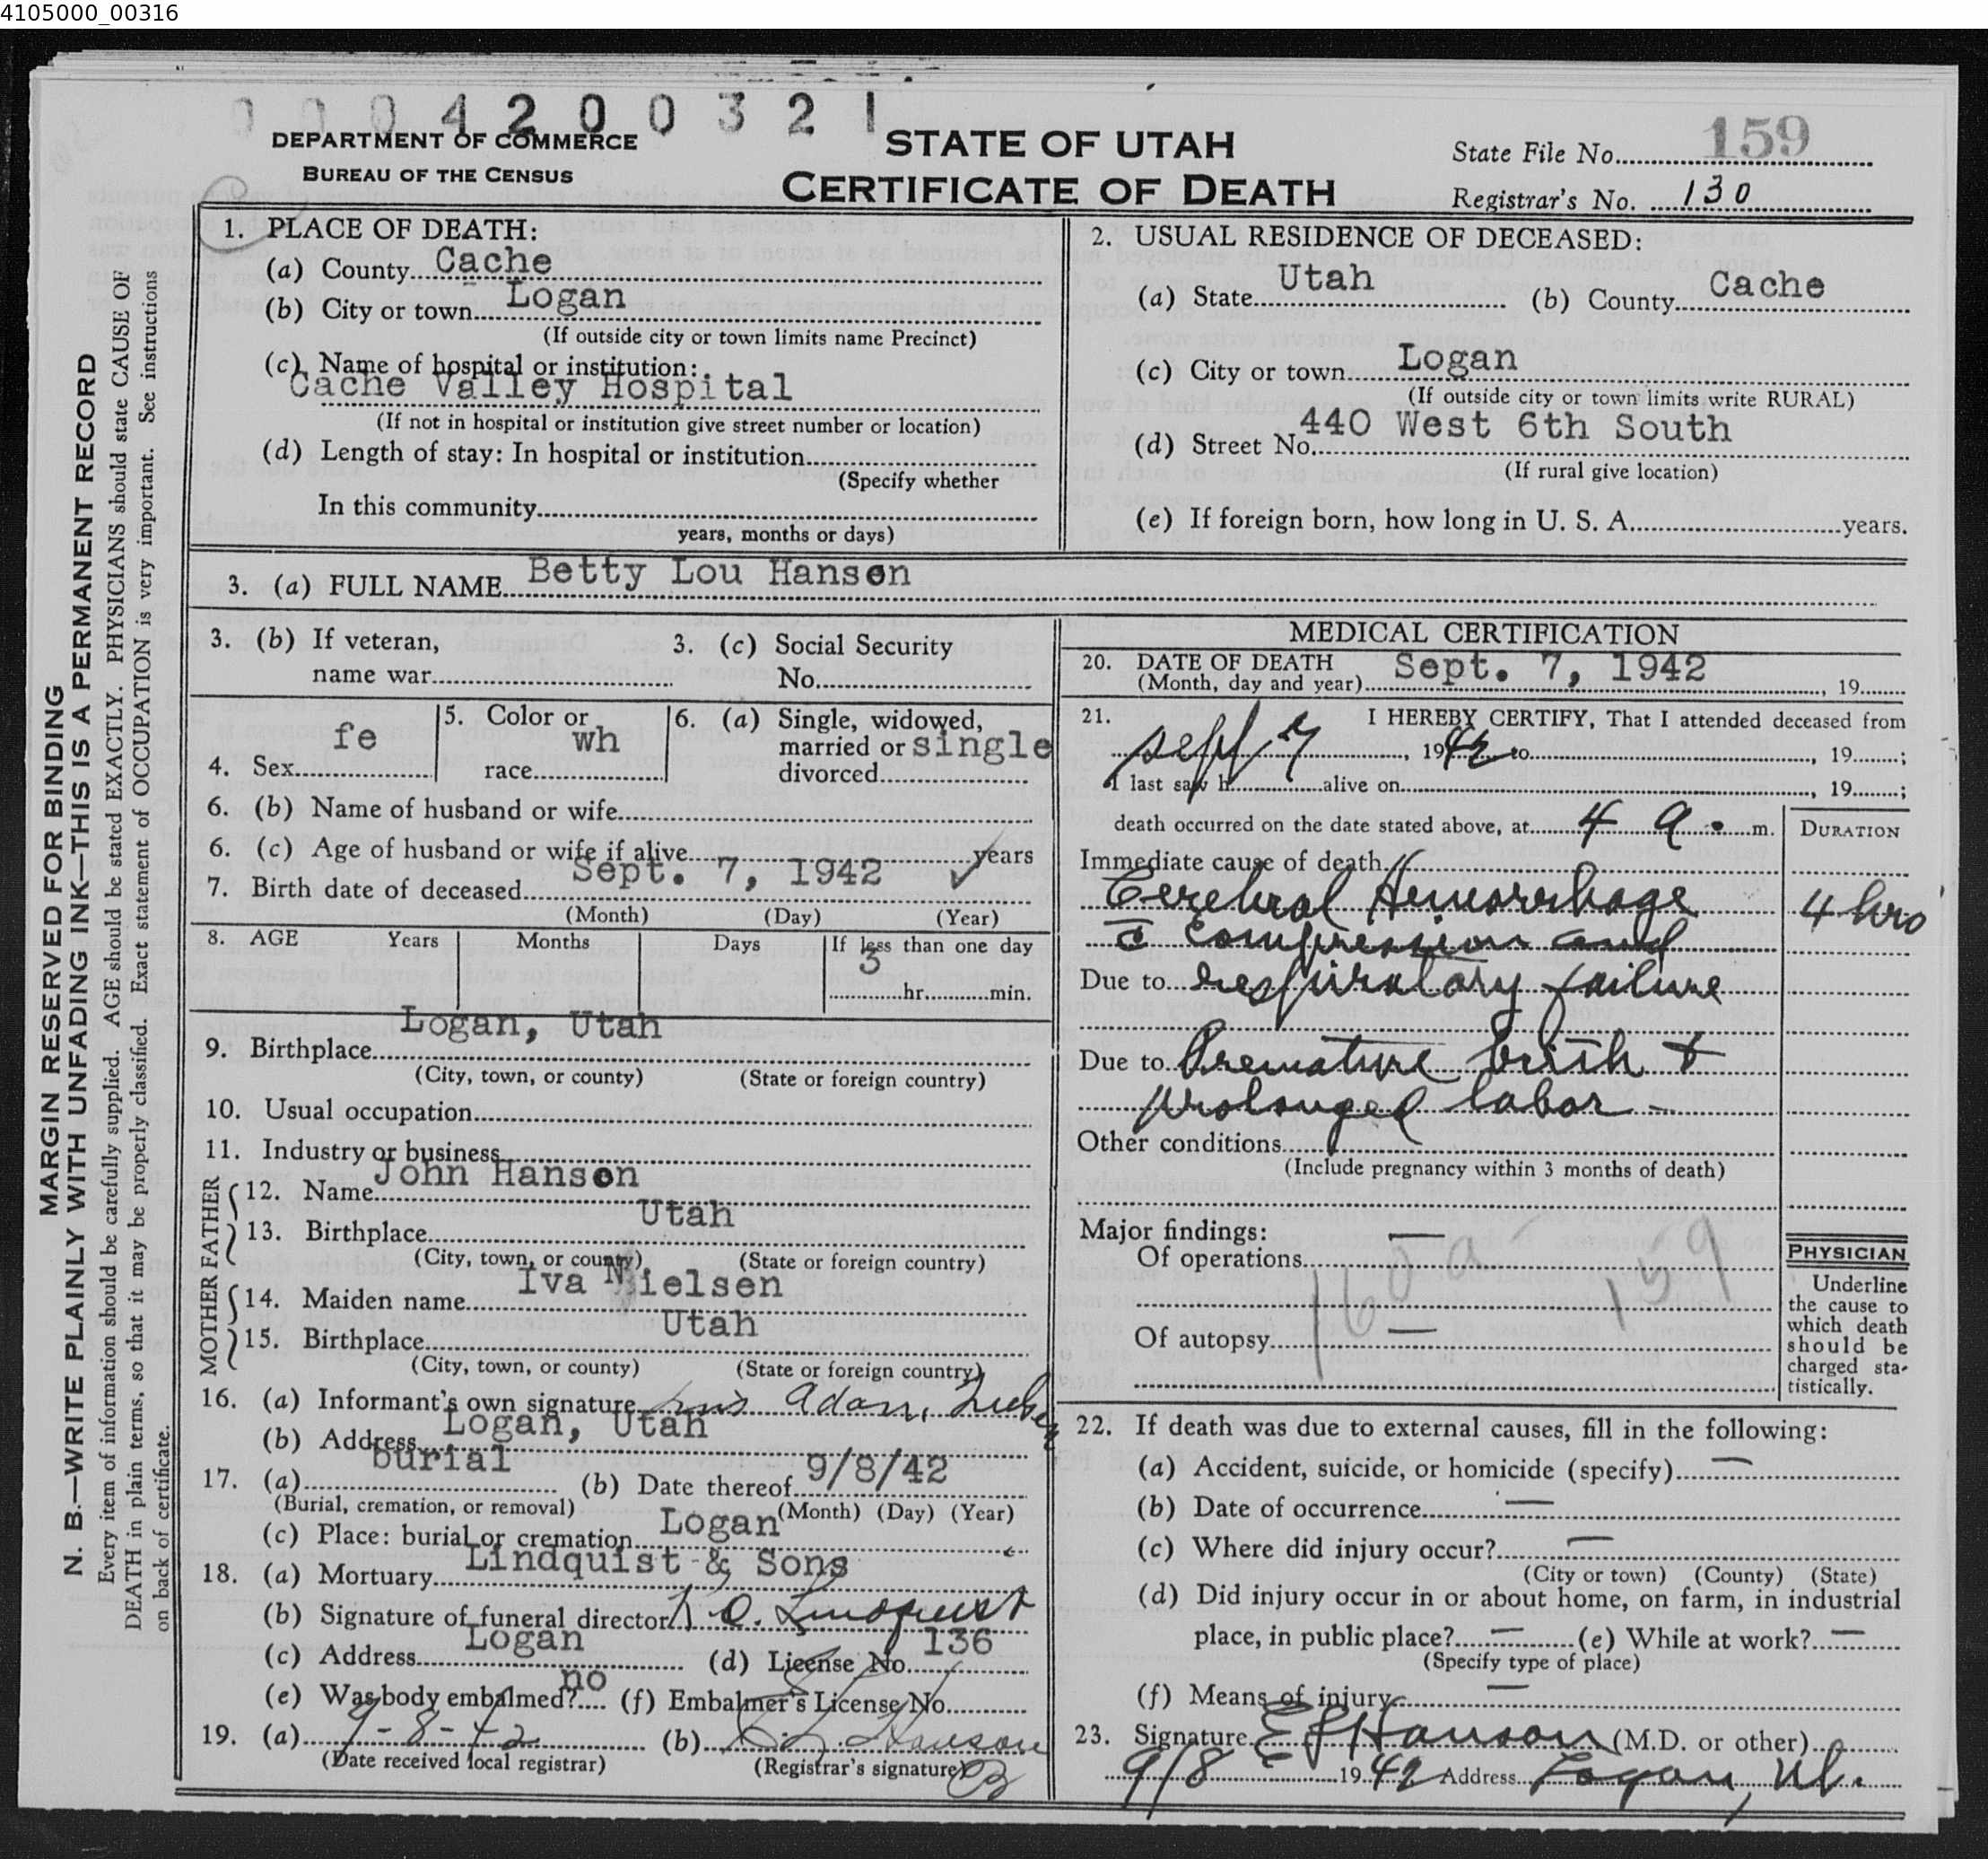 4105000_00316
0004200321
DEPARTMENT OF COMMERCE
BUREAU OF THE CENSUS
STATE OF UTAH
CERTIFICATE OF DEATH
State File No. 159
Registrar's No. 130
MARGIN RESERVED FOR BINDING
N. B.—WRITE PLAINLY WITH UNFADING INK—THIS IS A PERMANENT RECORD
Every item of information should be carefully supplied. AGE should be stated EXACTLY. PHYSICIANS should state CAUSE OF
DEATH in plain terms, so that it may be properly classified. Exact statement of OCCUPATION is very important. See instructions
on back of certificate.
1. PLACE OF DEATH:
(a) County Cache
(b) City or town Logan
(If outside city or town limits name Precinct)
(c) Name of hospital or institution:
Cache Valley Hospital
(If not in hospital or institution give street number or location)
(d) Length of stay: In hospital or institution
(Specify whether
In this community
years, months or days)
2. USUAL RESIDENCE OF DECEASED:
(a) State Utah (b) County Cache
(c) City or town Logan
(If outside city or town limits write RURAL)
(d) Street No. 440 West 6th South
(If rural give location)
(e) If foreign born, how long in U. S. A. years.
3. (a) FULL NAME Betty Lou Hansen
3. (b) If veteran,
name war
3. (c) Social Security
No.
4. Sex fe
5. Color or
race wh
6. (a) Single, widowed,
married or single
divorced
6. (b) Name of husband or wife
6. (c) Age of husband or wife if alive years
7. Birth date of deceased Sept. 7, 1942 ✓
(Month) (Day) (Year)
8. AGE Years Months Days If less than one day
3 hr. min.
9. Birthplace Logan, Utah
(City, town, or county) (State or foreign country)
10. Usual occupation
11. Industry or business
FATHER
12. Name John Hansen
13. Birthplace Utah
(City, town, or county) (State or foreign country)
MOTHER
14. Maiden name Iva Nielsen
15. Birthplace Utah
(City, town, or county) (State or foreign country)
16. (a) Informant's own signature Mrs Adam
(b) Address Logan, Utah
17. (a) burial (b) Date thereof 9/8/42
(Burial, cremation, or removal) (Month) (Day) (Year)
(c) Place: burial or cremation Logan
18. (a) Mortuary Lindquist & Sons
(b) Signature of funeral director O. Lindquist
(c) Address Logan (d) License No. 136
(e) Was body embalmed? no (f) Embalmer's License No.
19. (a) 9-8-42 (b) Hanson
(Date received local registrar) (Registrar's signature)
MEDICAL CERTIFICATION
20. DATE OF DEATH
(Month, day and year) Sept. 7, 1942, 19
21. I HEREBY CERTIFY, That I attended deceased from
Sept 7, 1942 to , 19 ;
I last saw h alive on , 19 ;
death occurred on the date stated above, at 4 a. m.
DURATION
Immediate cause of death
Cerebral Hemorrhage 4 hrs
c̄ compression and
Due to respiratory failure
Due to Premature birth +
prolonged labor -
Other conditions
(Include pregnancy within 3 months of death)
Major findings:
Of operations —
160a 159
Of autopsy —
PHYSICIAN
Underline
the cause to
which death
should be
charged sta-
tistically.
22. If death was due to external causes, fill in the following:
(a) Accident, suicide, or homicide (specify) —
(b) Date of occurrence —
(c) Where did injury occur? —
(City or town) (County) (State)
(d) Did injury occur in or about home, on farm, in industrial
place, in public place? — (e) While at work? —
(Specify type of place)
(f) Means of injury —
23. Signature Hanson (M.D. or other)
9/8 1942 Address Logan, Ut.